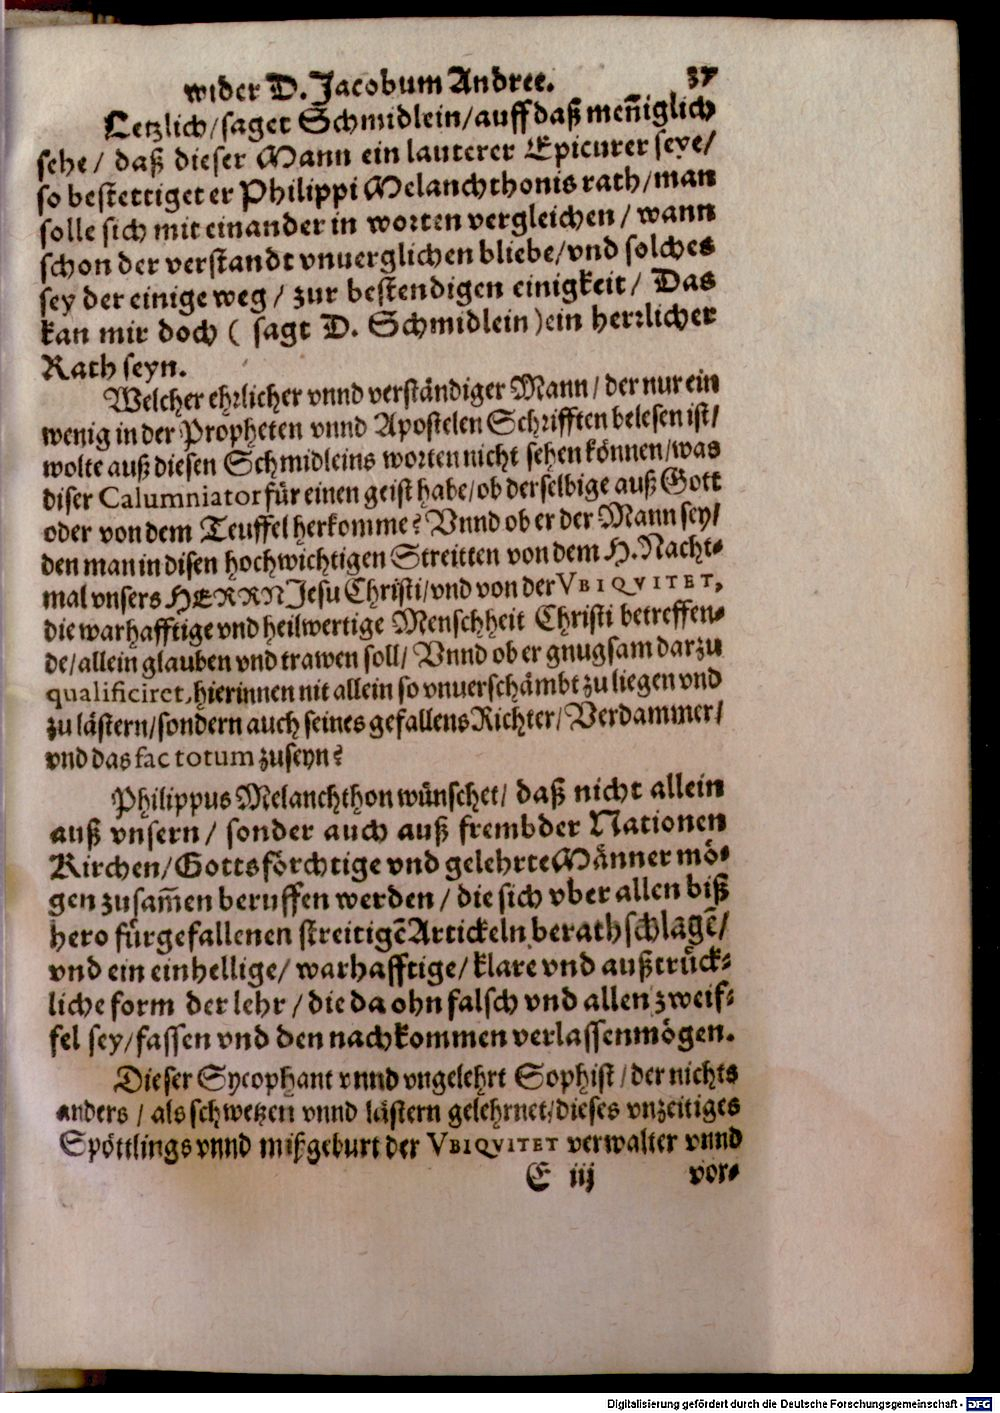 wider D. Jacobum Andree. 37
Letzlich/saget Schmidlein/auff daß meñiglich
sehe/ daß dieser Mann ein lauterer Epicurer seye/
so bestettiget er Philippi Melanchthonis rath/man
solle sich mit einander in worten vergleichen/ wann
schon der verstandt vnuerglichen bliebe/vnd solches
sey der einige weg/ zur bestendigen einigkeit/ Das
kan mir doch ( sagt D. Schmidlein) ein herrlicher
Rath seyn.
Welcher ehrlicher vnnd verständiger Mann/ der nur ein
wenig in der Propheten vnnd Apostelen Schrifften belesen ist/
wolte auß diesen Schmidleins worten nicht sehen können/was
diser Calumniator für einen geist habe/ob derselbige auß Gott
oder von dem Teuffel herkomme? Vnnd ob er der Mann sey/
den man in disen hochwichtigen Streitten von dem H. Nacht-
mal vnsers HERRN Jesu Christi/vnd von der VBIQVITET,
die warhafftige vnd heilwertige Menschheit Christi betreffen-
de/allein glauben vnd trawen soll/ Vnnd ob er gnugsam darzu
qualificiret, hierinnen nit allein so vnuerschämbt zu liegen vnd
zu lästern/sondern auch seines gefallens Richter/Verdammer/
vnd das fac totum zuseyn?
Philippus Melanchthon wünschet/ daß nicht allein
auß vnsern/ sonder auch auß frembder Nationen
Kirchen/Gottsförchtige vnd gelehrte Männer mö-
gen zusam̃en beruffen werden/ die sich vber allen biß
hero fürgefallenen streitigẽ Artickeln berathschlagẽ/
vnd ein einhellige/ warhafftige/ klare vnd außtrück-
liche form der lehr/ die da ohn falsch vnd allen zweif-
fel sey/fassen vnd den nachkommen verlassen mögen.
Dieser Sycophant vnnd vngelehrt Sophist/ der nichts
anders/ als schwetzen vnnd lästern gelehrnet/dieses vnzeitiges
Spöttlings vnnd mißgeburt der VBIQVITET verwalter vnnd
E iij vor-
Digitalisierung gefördert durch die Deutsche Forschungsgemeinschaft - DFG